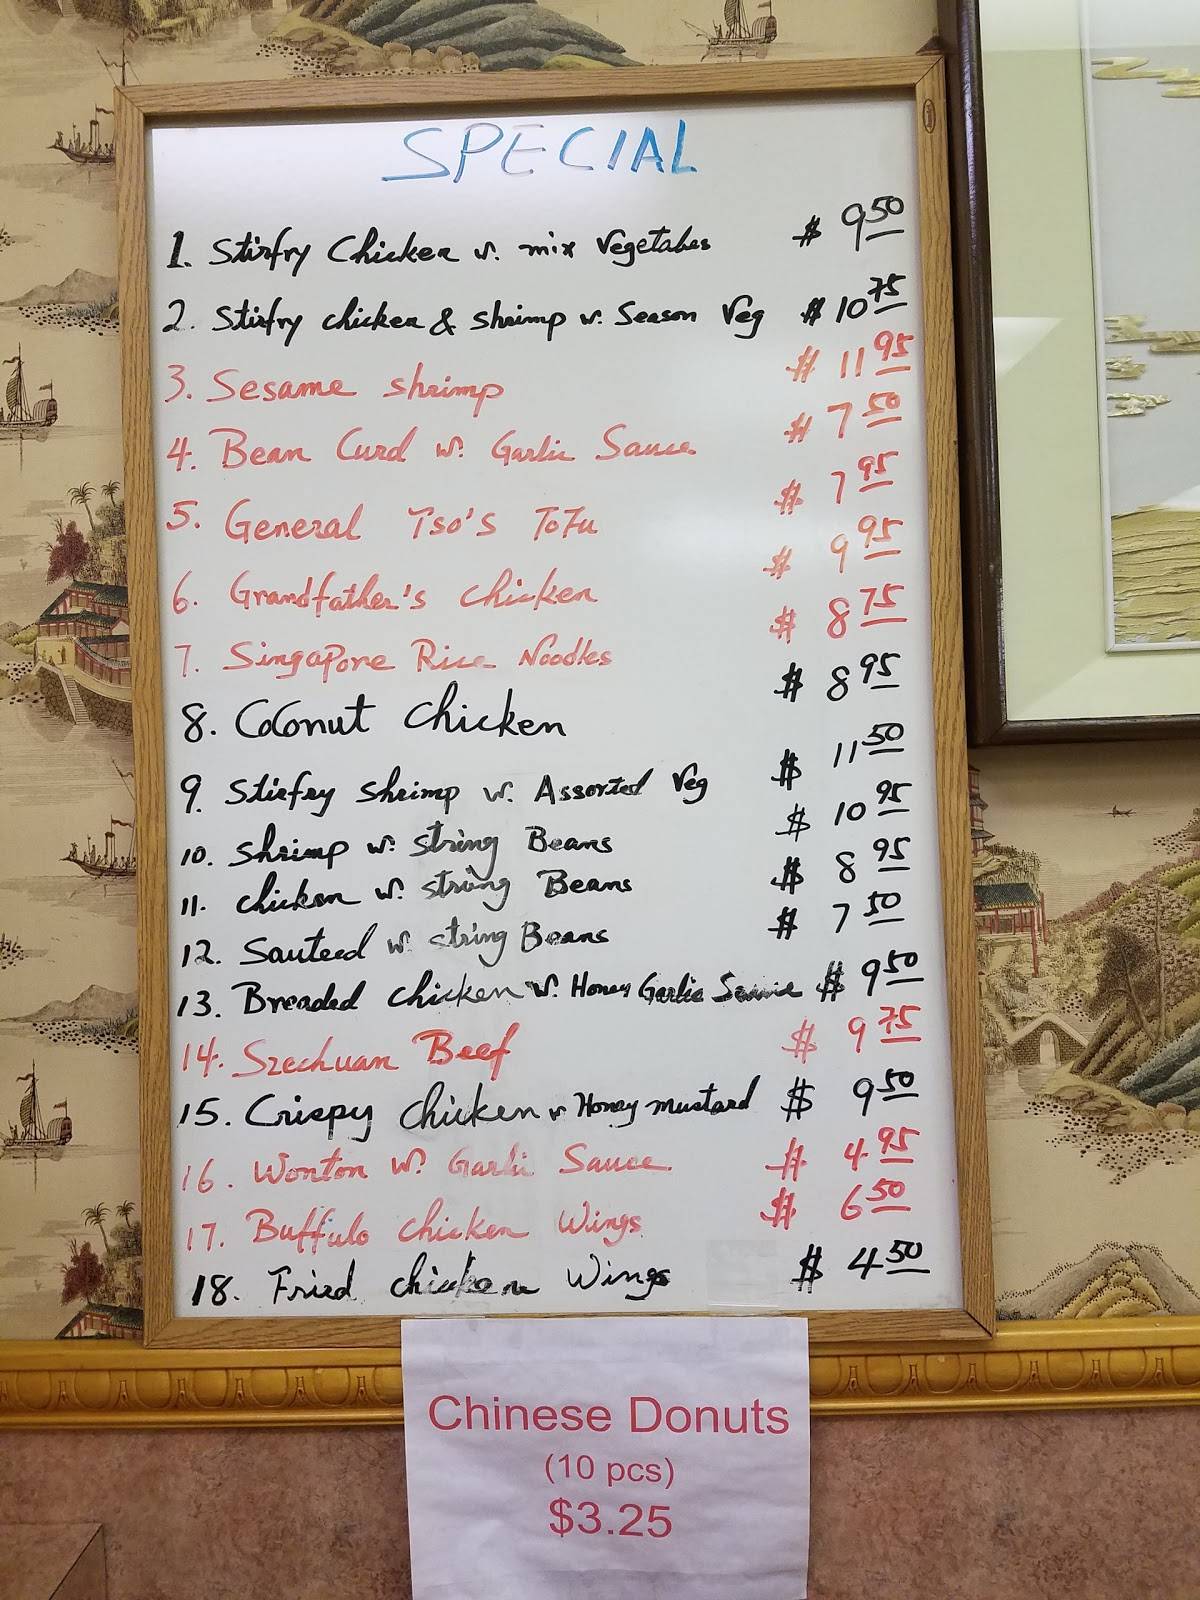 SPECIAL
1. Stirfry Chicken w. mix Vegetabes $ 9.50
2. Stirfry chicken & shrimp w. Season Veg $ 10.75
3. Sesame shrimp $ 11.95
4. Bean Curd w. Garlic Sauce $ 7.50
5. General Tso's ToFu $ 7.95
6. Grandfather's chicken $ 9.95
7. Singapore Rice Noodles $ 8.75
8. Coconut chicken $ 8.95
9. Stirfry shrimp w. Assorted Veg $ 11.50
10. Shrimp w. string Beans $ 10.95
11. chicken w. string Beans $ 8.95
12. Sauteed w. string Beans $ 7.50
13. Breaded chicken w. Honey Garlic Sauce $ 9.50
14. Szechuan Beef $ 9.75
15. Crispy chicken w Honey mustard $ 9.50
16. Wonton w. Garlic Sauce $ 4.95
17. Buffulo chicken Wings $ 6.50
18. Fried chicken Wings $ 4.50
Chinese Donuts
(10 pcs)
$3.25